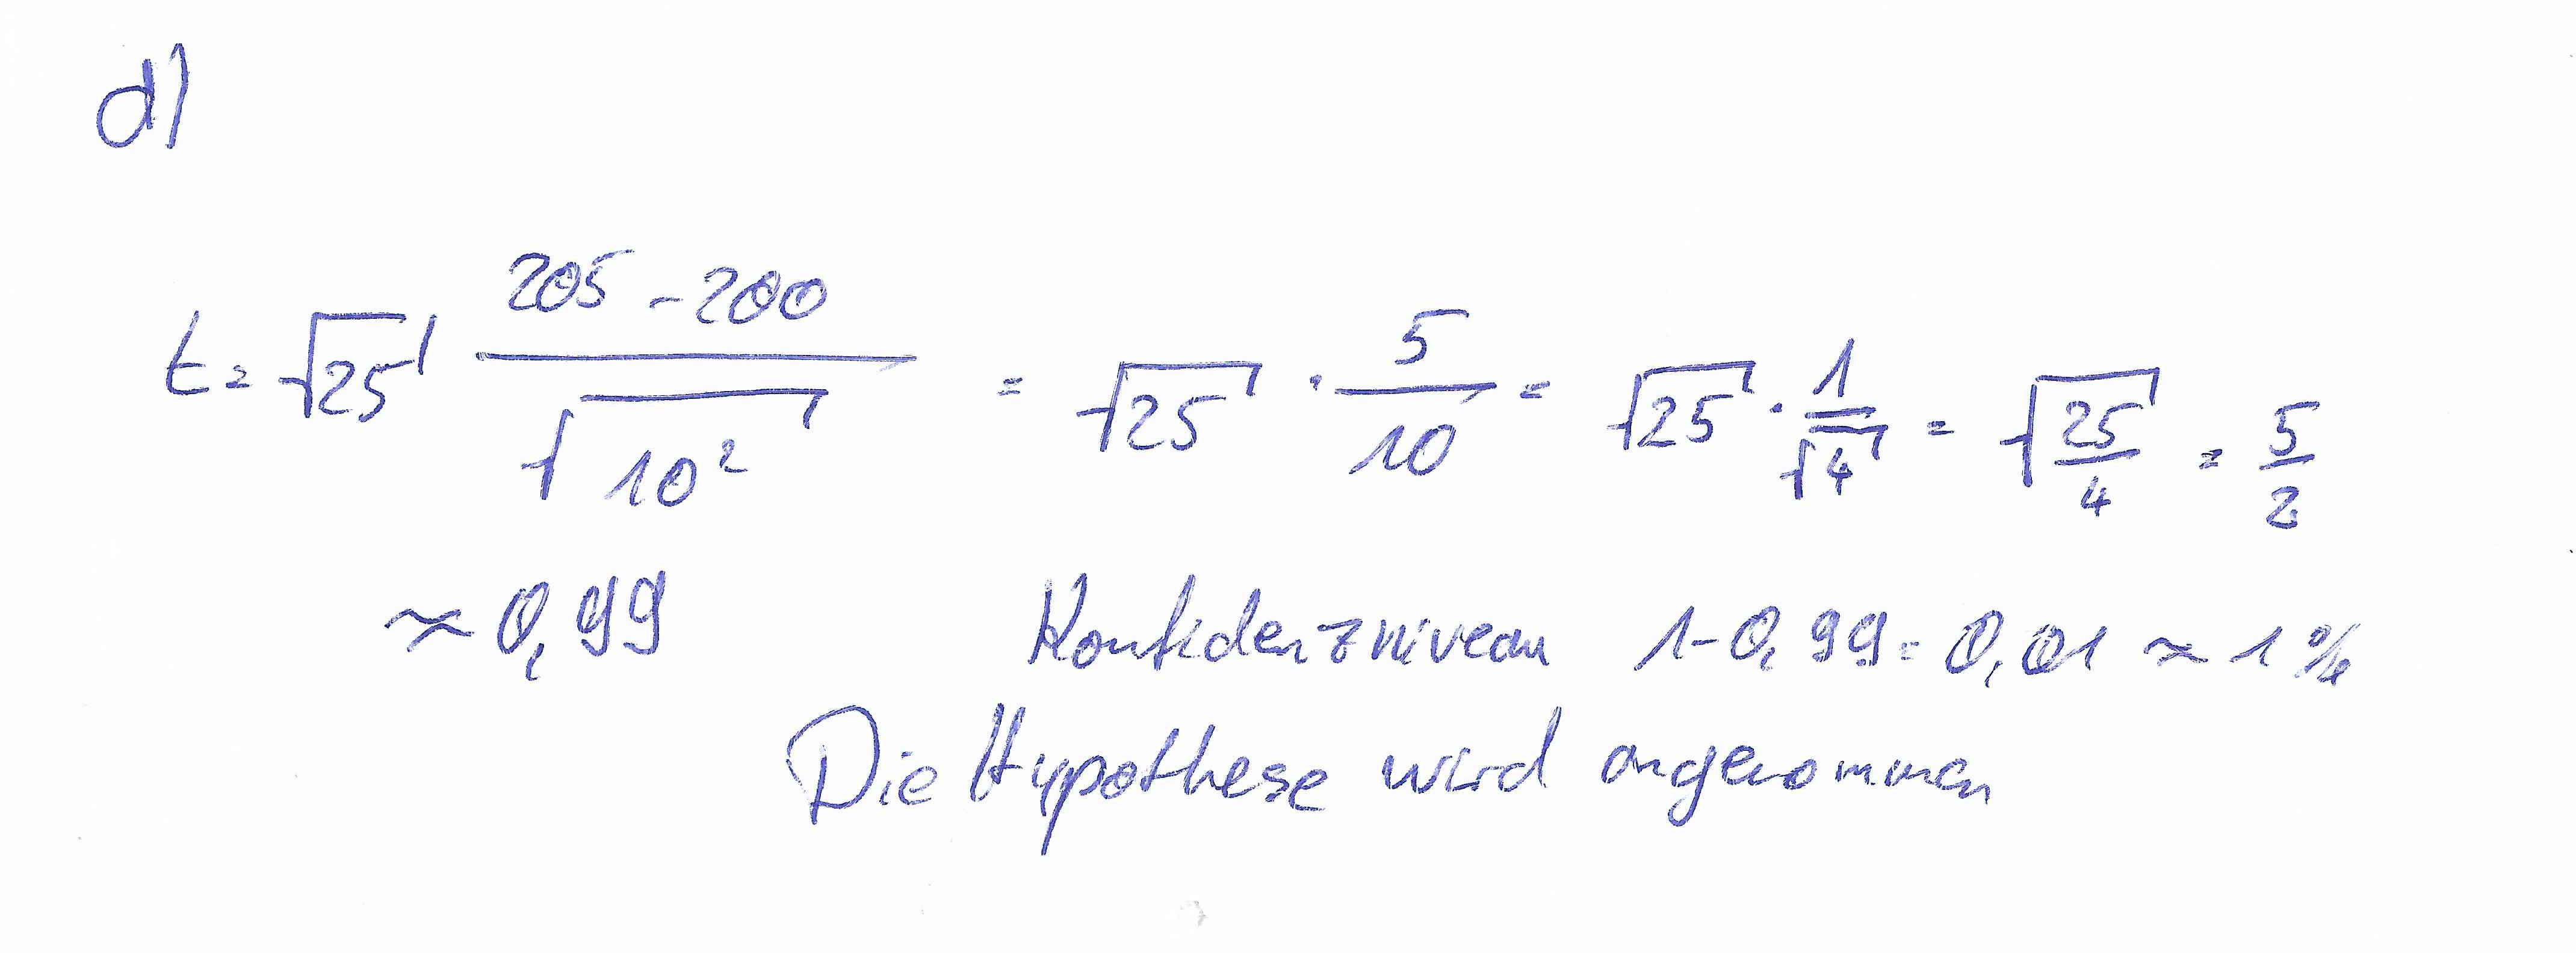 d)
t = √25 (205 - 200)/√(10²) = √25 · 5/10 = √25 · 1/√4 = √(25/4) = 5/2
≈ 0,99 Konfidenzniveau 1-0,99 = 0,01 ≈ 1%
Die Hypothese wird angenommen